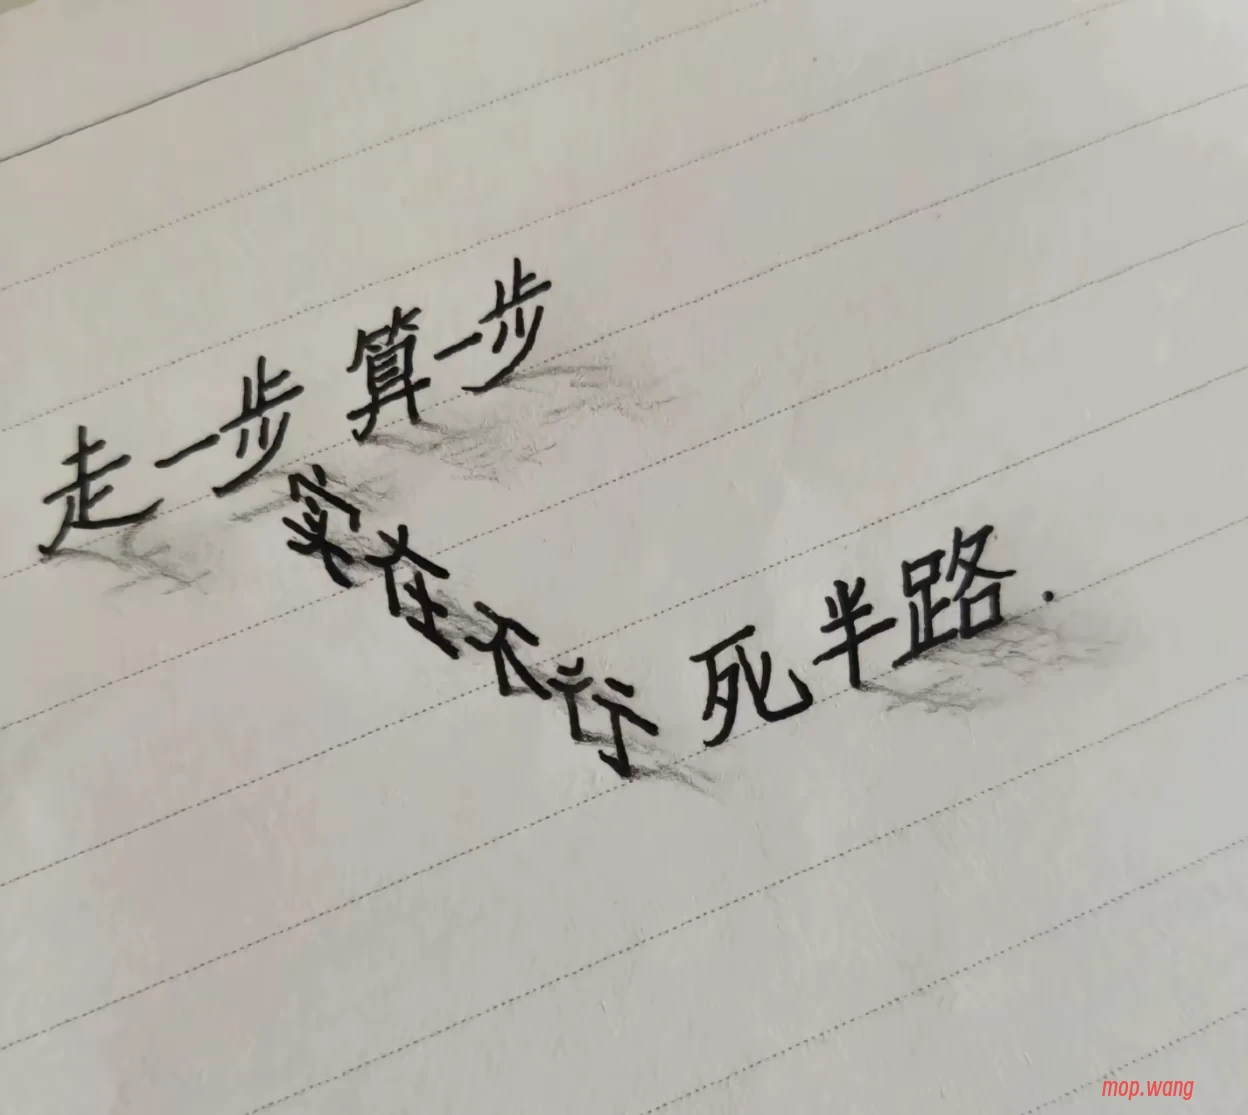 走一步 算一步
实在不行
死半路.
mop.wang